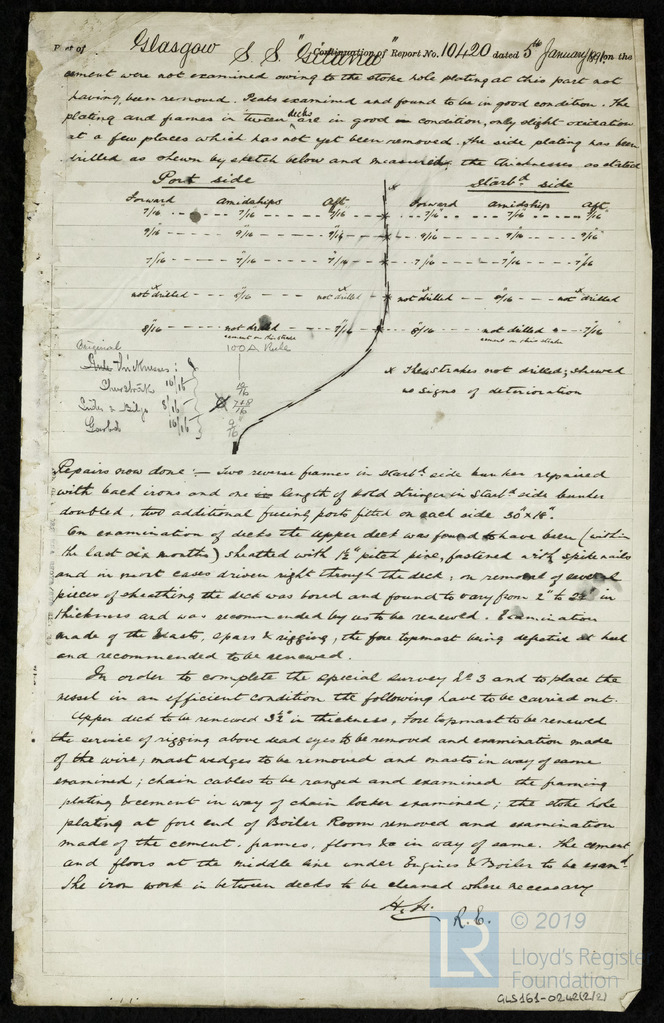 Port of Glasgow S.S. " " Continuation of Report No. 10420 dated 5th January 1891 on the
cement were not examined owing to the stoke hole plating at this part not
having been removed. Peaks examined and found to be in good condition. The
plating and frames in tween decks are in good condition, only slight oxidation
at a few places which has not yet been removed. The side plating has been
drilled as shewn by sketch below and measured, the thicknesses as stated
Port side Starbd side
Forward amidships Aft Forward amidships Aft
7/16 7/16 7/16 7/16 7/16 7/16
9/16 9/16 9/16 9/16 9/16 9/16
7/16 7/16 7/16 7/16 7/16 7/16
not drilled 8/16 not drilled not drilled 8/16 not drilled
8/16 not drilled 7/16 8/16 not drilled 7/16
cement on this strake cement on this strake
Original 100A Rule
Thicknesses:
10/16
Sides & Bilge 8/16
10/16
x These strakes not drilled; shewed
no signs of deterioration
Repairs now done:— Two reverse frames in starbd side bunker repaired
with back irons and one length of hold stringer in starbd side bunker
doubled, two additional freeing ports fitted on each side 30"x18".
On examination of decks the upper deck was found to have been (within
the last six months) sheathed with 1½" pitch pine, fastened with spike nails
and in most cases driven right through the deck; on removal of several
pieces of sheathing the deck was bored and found to vary from 2" to 2½" in
thickness and was recommended by us to be renewed. Examination
made of the masts, spars & rigging, the fore topmast being defective at heel
and recommended to be renewed.
In order to complete the special survey No 3 and to place the
vessel in an efficient condition the following have to be carried out.
Upper deck to be renewed 3½" in thickness, Fore topmast to be renewed
the service of rigging above dead eyes to be removed and examination made
of the wire; mast wedges to be removed and masts in way of same
examined; chain cables to be ranged and examined the framing
plating & cement in way of chain locker examined; the stoke hole
plating at fore end of Boiler Room removed and examination
made of the cement, frames, floors &c in way of same. The cement
and floors at the middle line under Engines & Boiler to be examd
The iron work in between decks to be cleaned where necessary
R.E.
LR © 2019
Lloyd's Register
Foundation
GLS161-0242(2/2)